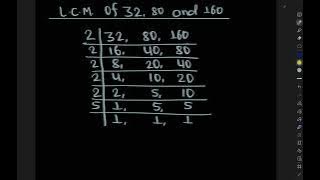 L.C.M. Of 32, 80 and 160
2 | 32, 80, 160
2 | 16, 40, 80
2 | 8, 20, 40
2 | 4, 10, 20
2 | 2, 5, 10
5 | 1, 5, 5
1, 1, 1